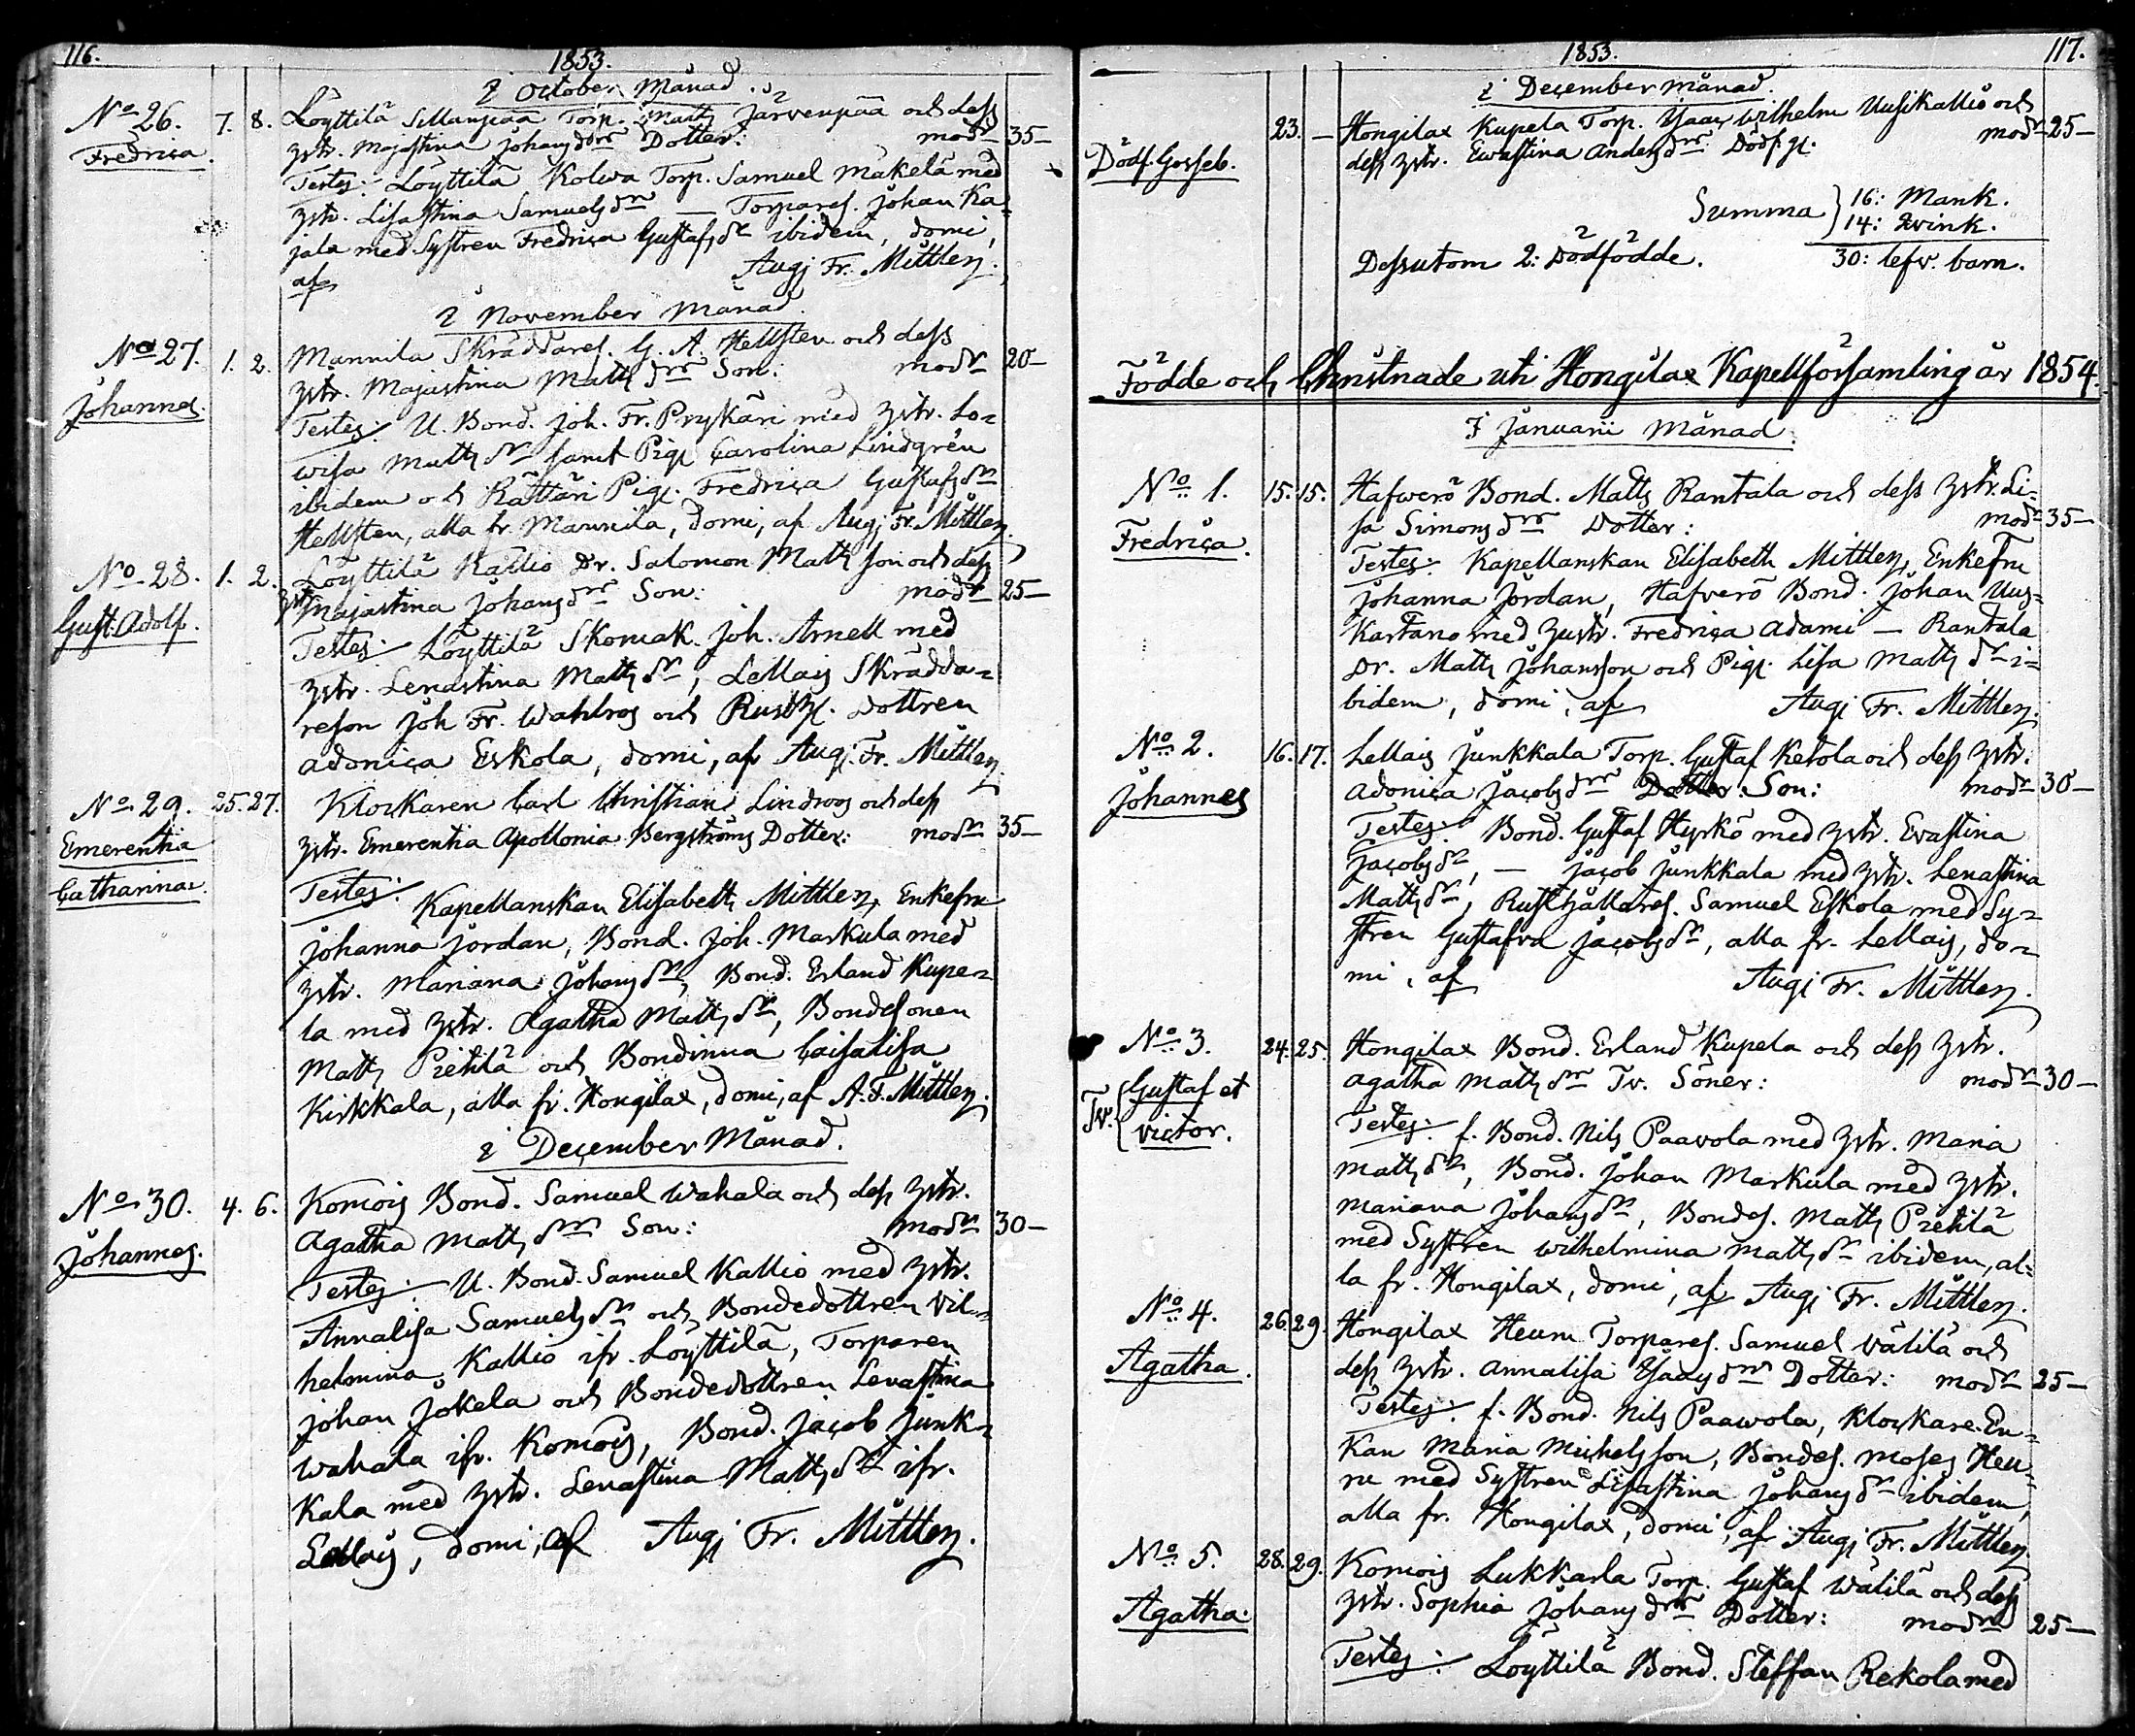 116.
1853.
I October Månad.
No 26. 7. 8. Löyttilä Sillanpää Torp. Matts Järvenpää och dess
Fredrica. hstr. Majastina Johansdr Dotter: modr 35-
Testes: Löyttilä Kolwa Torp. Samuel Mäkelä med
hstr. Lisastina Samuelsdr — Torpares. Johan Ka-
jala med Systren Fredrica Gustafsdr ibidem, domi,
af Augj Fr. Mittler.
i November Månad.
No 27. 1. 2. Mannila Skräddares. G. A. Hellsten och dess
Johannes. hstr. Majastina Mattsdr Son: modr 20-
Testes: U. Bond. Joh. Fr. Prykäri med hstr. Lo-
wisa Mattsdr samt Pig. Carolina Lindgrén
ibidem och Rättäri Pig. Fredrica Gustafsdr
Hellsten, alla fr. Mannila, domi, af Augj Fr. Mittler.
No 28. 1. 2. Löyttilä Kallio Dr. Salomon Matts son och dess
Gust. Adolf. hstr Majastina Johansdr Son: modr 25-
Testes: Löyttilä Skomak. Joh. Arnell med
hstr. Lenastina Mattsdr, Lellais Skrädda-
reson Joh Fr. Wahlros och Rusth. Dottren
Adonica Eskola, domi, af Augj. Fr. Mittler.
No 29. 25. 27. Klockaren Carl Christian Lindroos och dess
Emerentia hstr. Emerentia Apollonia Bergströms Dotter: modr 35-
Catharina.
Testes: Kapellanskan Elisabeth Mittler, Enkefru
Johanna Jordan, Bond. Joh. Markula med
hstr. Mariana Johansdr, Bond. Erland Kupe-
la med hstr. Agatha Mattsdr, Bondesonen
Matts Pietilä och Bondinna Caisalisa
Kirkkala, alla fr. Hongilax, domi, af A. F. Mittler.
i December Månad.
No 30. 4. 6. Komois Bond. Samuel Wahala och dess hstr.
Johannes. Agatha Mattsdr Son: modr 30-
Testes: U. Bond. Samuel Kallio med hstr.
Annalisa Samuelsdr och Bondedottren Vil-
helmina Kallio ifr. Löyttilä, Torparen
Johan Jokela och Bondedottren Lenastina
Wahala ifr. Komois, Bond. Jacob Junk-
kala med hstr. Lenastina Mattsdr ifr.
Lellais, domi, af Augj Fr. Mittler.
1853.
117.
i December Månad.
23. — Hongilax Kupela Torp. Isaac Wilhelm Uusikallio och
Dödf. Gosseb. dess hstr. Ewastina Andersdr Dödf. g. modr 25-
Summa } 16: Mank.
14: Qvink.
Dessutom 2: Dödfödde. 30: lefv. barn.
Födde och Christnade uti Hongilax Kapellförsamling år 1854.
I Januarii Månad.
No 1. 15. 15. Hafwerö Bond. Matts Rantala och dess hstr. Li-
Fredrica. sa Simonsdr Dotter: modr 35-
Testes: Kapellanskan Elisabeth Mittler, Enkefru
Johanna Jordan, Hafverö Bond. Johan Uus-
Kartano med hustr. Fredrica Adami — Rantala
Dr. Matts Johansson och Pig. Lisa Mattsdr i-
bidem, domi, af Augj Fr. Mittler.
No 2. 16. 17. Lellais Junkkala Torp. Gustaf Ketola och dess hstr.
Johannes Adonica Jacobsdr Dotter: Son: modr 30-
Testes: Bond. Gustaf Hyrkö med hstr. Evastina
Jacobsdr, — Jacob Junkkala med hstr. Lenastina
Mattsdr, Rusthållares. Samuel Eskola med Sy-
stren Gustafva Jacobsdr, alla fr. Lellais, do-
mi, af Augj Fr. Mittler.
No 3. 24. 25. Hongilax Bond. Erland Kupela och dess hstr.
Tv. { Gustaf et Agatha Mattsdr Tv. Söner: modr 30-
Victor.
Testes: f. Bond. Nils Paavola med hstr. Maria
Mattsdr, Bond. Johan Markula med hstr.
Mariana Johansdr, Bondes. Matts Pietilä
med Systren Wilhelmina Mattsdr ibidem, al-
la fr. Hongilax, domi, af Augj Fr. Mittler.
No 4. 26. 29. Hongilax Heuru Torpares. Samuel Välilä och
Agatha. dess hstr. Annalisa Isacsdr Dotter: modr 25-
Testes: f. Bond. Nils Paawola, Klockare-En-
kan Maria Michelsson, Bondes. Moses Heu-
ru med Systren Lisastina Johansdr ibidem,
alla fr. Hongilax, domi, af Augj Fr. Mittler
No 5. 28. 29. Komois Lukkarla Torp. Gustaf Wälilä och dess
Agatha. hstr. Sophia Johansdr Dotter: modr 25-
Testes: Löyttilä Bond. Steffan Rekola med